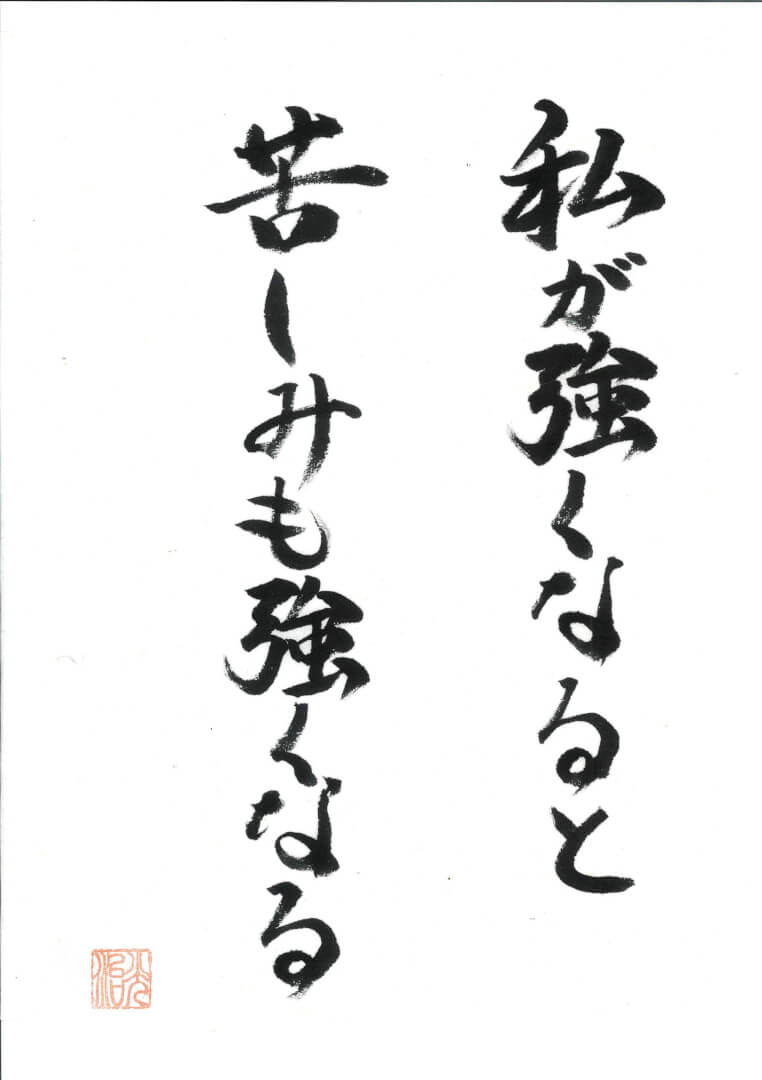 私が強くなると
苦しみも強くなる